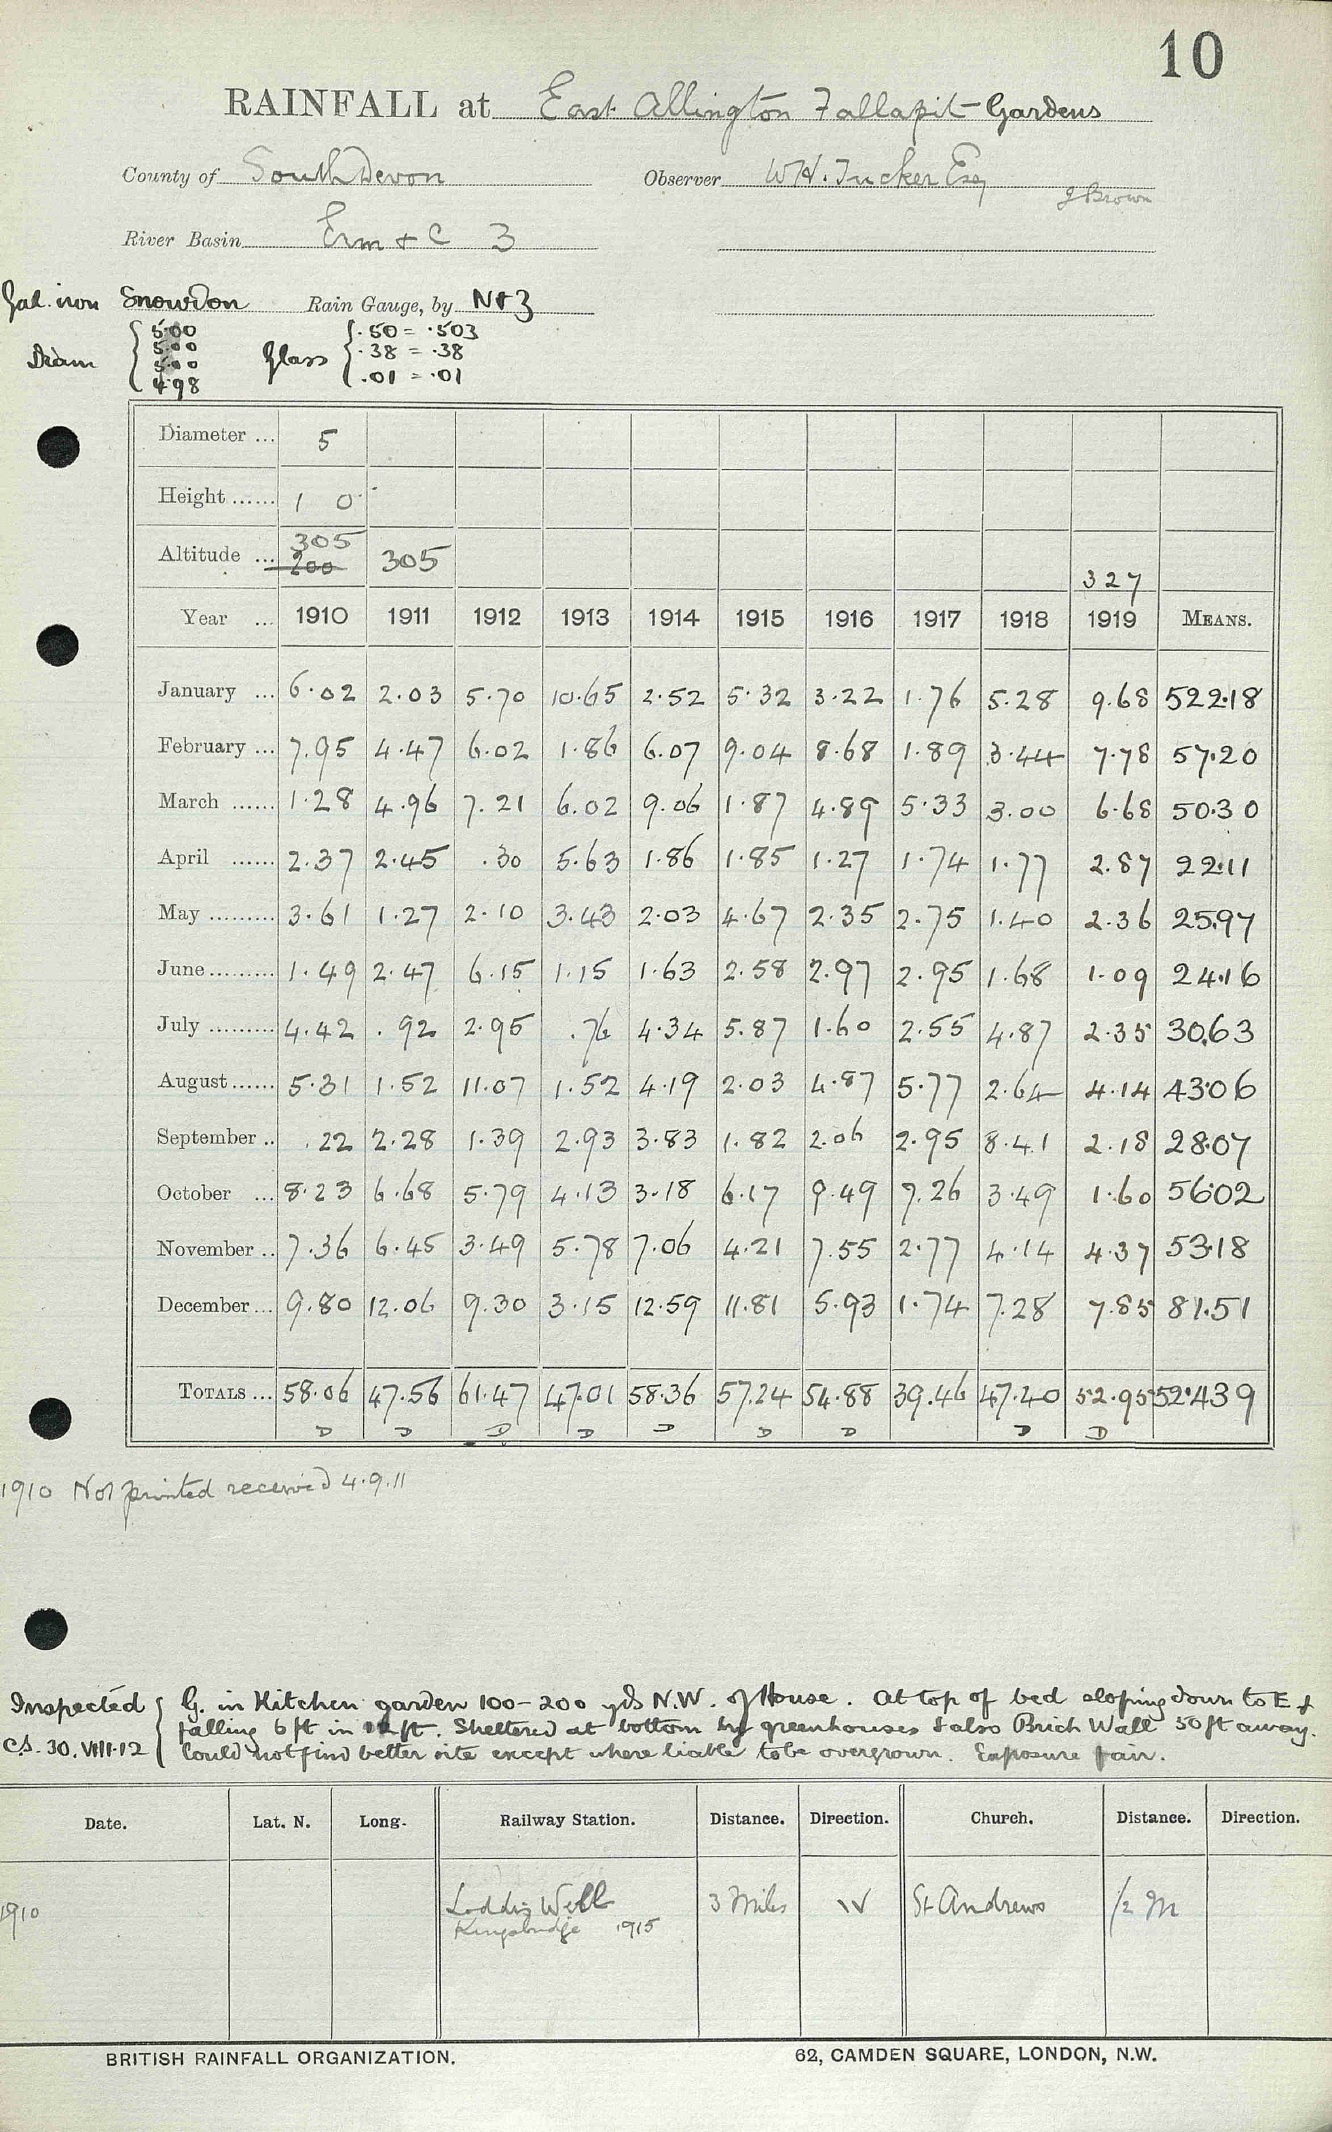 10
RAINFALL at East Allington Fallapit Gardens
County of South Devon Observer W.H. Tucker Esq
J Brown
River Basin Erm & C 3
Gal. iron Snowdon Rain Gauge, by N & Z
Diam { 5.00 5.00 5.00 4.98 Glass { .50 = .503 .38 = .38 .01 = .01
Diameter ... 5
Height ...... 1 0
Altitude ... 305 200 305 327
Year ... 1910 1911 1912 1913 1914 1915 1916 1917 1918 1919 MEANS.
January ... 6.02 2.03 5.70 10.65 2.52 5.32 3.22 1.76 5.28 9.68 522.18
February ... 7.95 4.47 6.02 1.86 6.07 9.04 8.68 1.89 3.44 7.78 57.20
March ...... 1.28 4.96 7.21 6.02 9.06 1.87 4.89 5.33 3.00 6.68 50.30
April ...... 2.37 2.45 .30 5.63 1.86 1.85 1.27 1.74 1.77 2.87 22.11
May ......... 3.61 1.27 2.10 3.43 2.03 4.67 2.35 2.75 1.40 2.36 25.97
June ......... 1.49 2.47 6.15 1.15 1.63 2.58 2.97 2.95 1.68 1.09 24.16
July ......... 4.42 .92 2.95 .76 4.34 5.87 1.60 2.55 4.87 2.35 30.63
August ...... 5.31 1.52 11.07 1.52 4.19 2.03 4.87 5.77 2.64 4.14 43.06
September .. .22 2.28 1.39 2.93 3.83 1.82 2.06 2.95 8.41 2.18 28.07
October ... 8.23 6.68 5.79 4.13 3.18 6.17 9.49 7.26 3.49 1.60 56.02
November .. 7.36 6.45 3.49 5.78 7.06 4.21 7.55 2.77 4.14 4.37 53.18
December ... 9.80 12.06 9.30 3.15 12.59 11.81 5.93 1.74 7.28 7.85 81.51
TOTALS ... 58.06 47.56 61.47 47.01 58.36 57.24 54.88 39.46 47.40 52.95 524.39
D D D D D D D D D
1910 Not printed received 4.9.11
Inspected { G. in Kitchen garden 100-200 yds N.W. of House. At top of bed sloping down to E &
falling 6 ft in 12 ft. Sheltered at bottom by greenhouses & also Brick Wall 50 ft away.
C.S. 30.VIII.12 Could not find better site except where liable to be overgrown. Exposure fair.
Date. Lat. N. Long. Railway Station. Distance. Direction. Church. Distance. Direction.
1910 Loddis Well 3 Miles W St Andrews 1/2 M
Kingsbridge 1915
BRITISH RAINFALL ORGANIZATION. 62, CAMDEN SQUARE, LONDON, N.W.